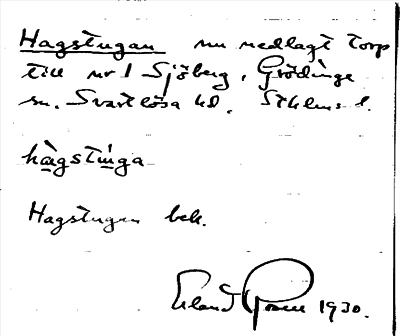 Hagstugan nu nedlagt torp
till nr 1 Sjöberg, Grödinge
sn. Svartlösa hd. Sthlms l.
hagstuga
Hagstugan bek.
Erland Rosell 1930.